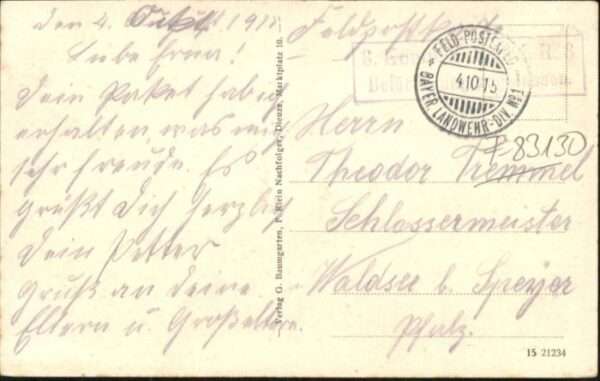 den 4. Okt. 1915
Liebe Erna!
Dein Paket hab ich
erhalten was mich
sehr freute. Es
grüßt Dich herzlich
Dein Vetter
Gruß an deine
Eltern u. Großeltern.
Verlag G. Baumgarten, P. Klein Nachfolger, Dieuze, Marktplatz 10.
Feldpostkarte
FELD-POSTEXPED.
4 10 15
BAYER. LANDWEHR-DIV. No 1
Herrn
83130
Theodor Tremmel
Schlossermeister
Waldsee b. Speyer
Pfalz.
15 21234